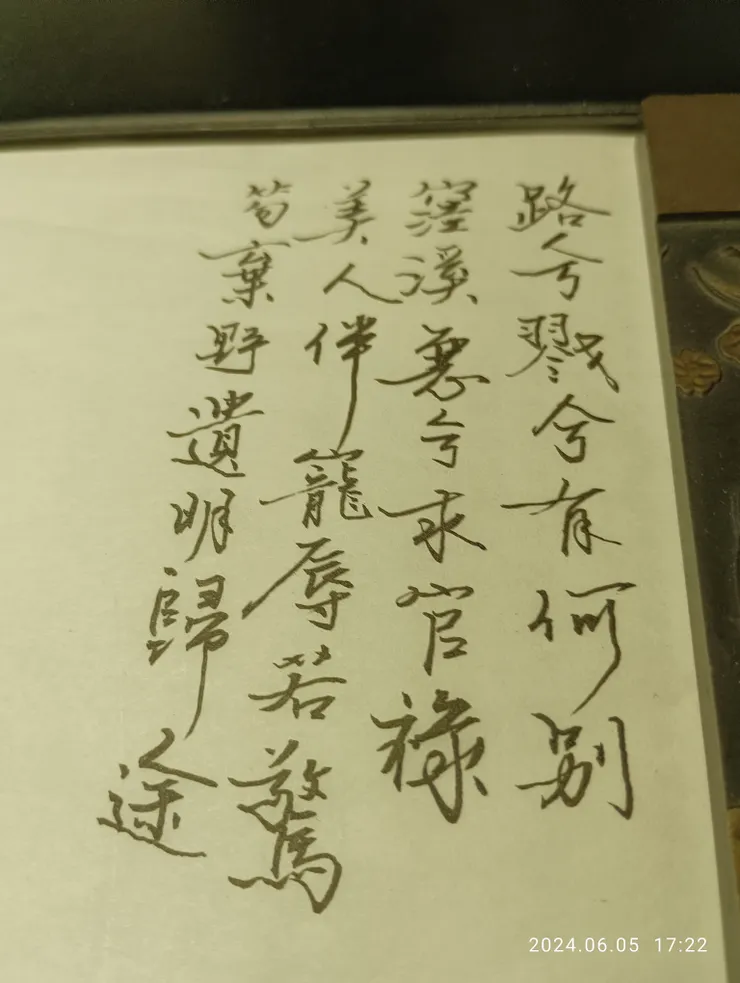 路兮戮兮有何别
溪兮求官禄
美人伴寵辱若驚
苟棄野遺明歸途
2024.06.05 17:22